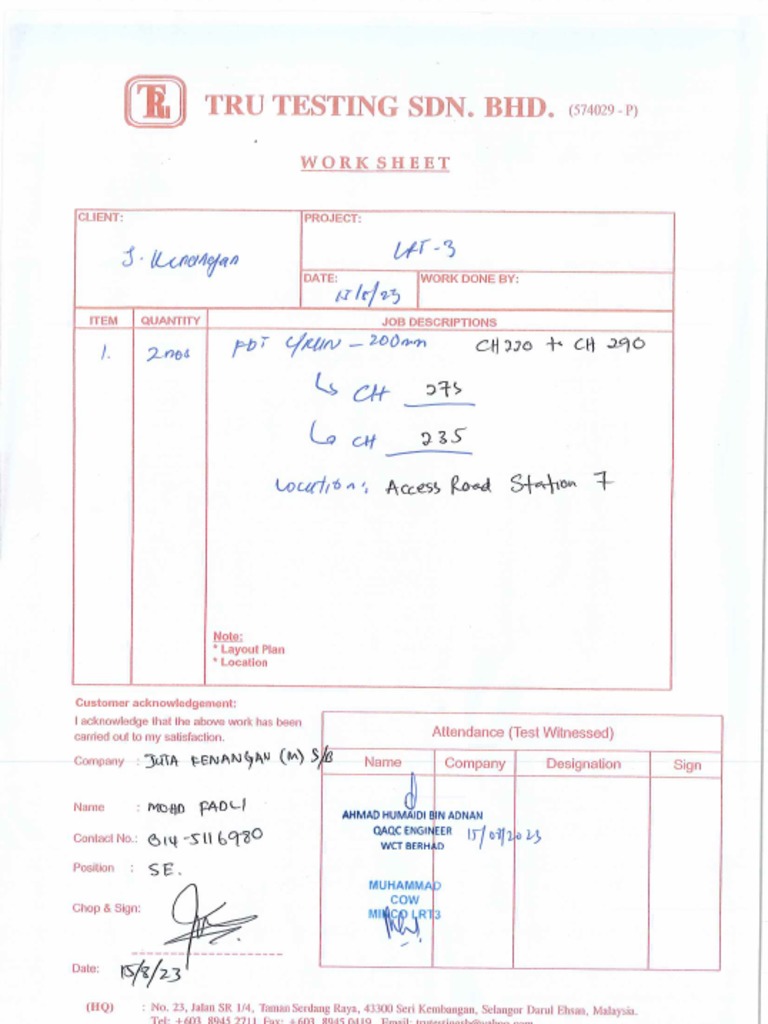 TRU TESTING SDN. BHD. (574029 - P)
WORK SHEET
CLIENT:
J. Kenangan
PROJECT:
LRT-3
DATE:
15/8/23
WORK DONE BY:
ITEM QUANTITY JOB DESCRIPTIONS
1. 2nos FDT C/RUN - 200mm CH220 to CH 290
↳ CH 275
↳ CH 235
Location: Access Road Station 7
Note:
* Layout Plan
* Location
Customer acknowledgement:
I acknowledge that the above work has been
carried out to my satisfaction.
Company : JUTA KENANGAN (M) S/B
Name : MOHD FADLI
Contact No.: 014-5116980
Position : SE.
Chop & Sign:
Date: 15/8/23
Attendance (Test Witnessed)
Name Company Designation Sign
AHMAD HUMAIDI BIN ADNAN
QAQC ENGINEER 15/08/2023
WCT BERHAD
MUHAMMAD
COW
MINCO LRT3
(HQ) : No. 23, Jalan SR 1/4, Taman Serdang Raya, 43300 Seri Kembangan, Selangor Darul Ehsan, Malaysia.
Tel: +603 8945 2711 Fax: +603 8945 0419 Email: trutestingsb@yahoo.com